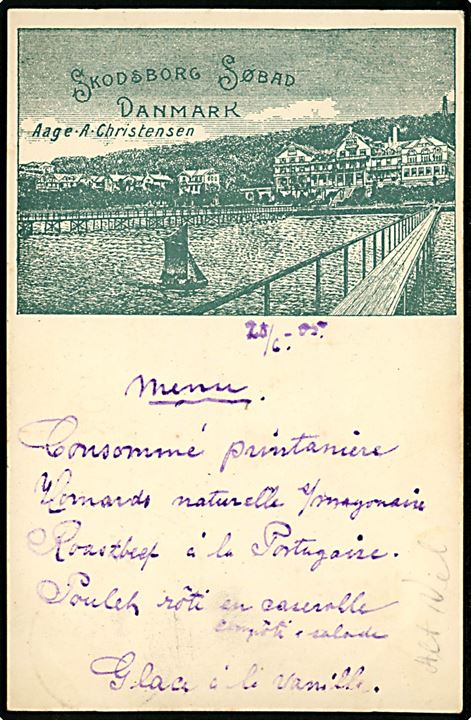 SKODSBORG SØBAD
DANMARK
Aage·A·Christensen
28/6-05.
Menu.
Consommé printaniere
Homards naturelle s/mayonaise
Roastbeef à la Portugaise.
Poulet rôti en caserolle
compôti & salade
Glace à li vanille.